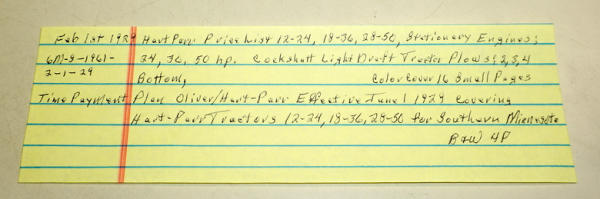 Feb 1st 1929 Hart Parr Price List 12-24, 18-36, 28-50, Stationary Engines;
6M-8-1961- 24, 36, 50 hp. Cockshutt Light Draft Tractor Plows; 2, 3, 4
2-1-29 Bottom, Color Cover 16 Small Pages
Time Payment Plan Oliver/Hart-Parr Effective June 1 1929 Covering
Hart-Parr Tractors 12-24, 18-36, 28-50 for Southern Minnesota
B&W 4P